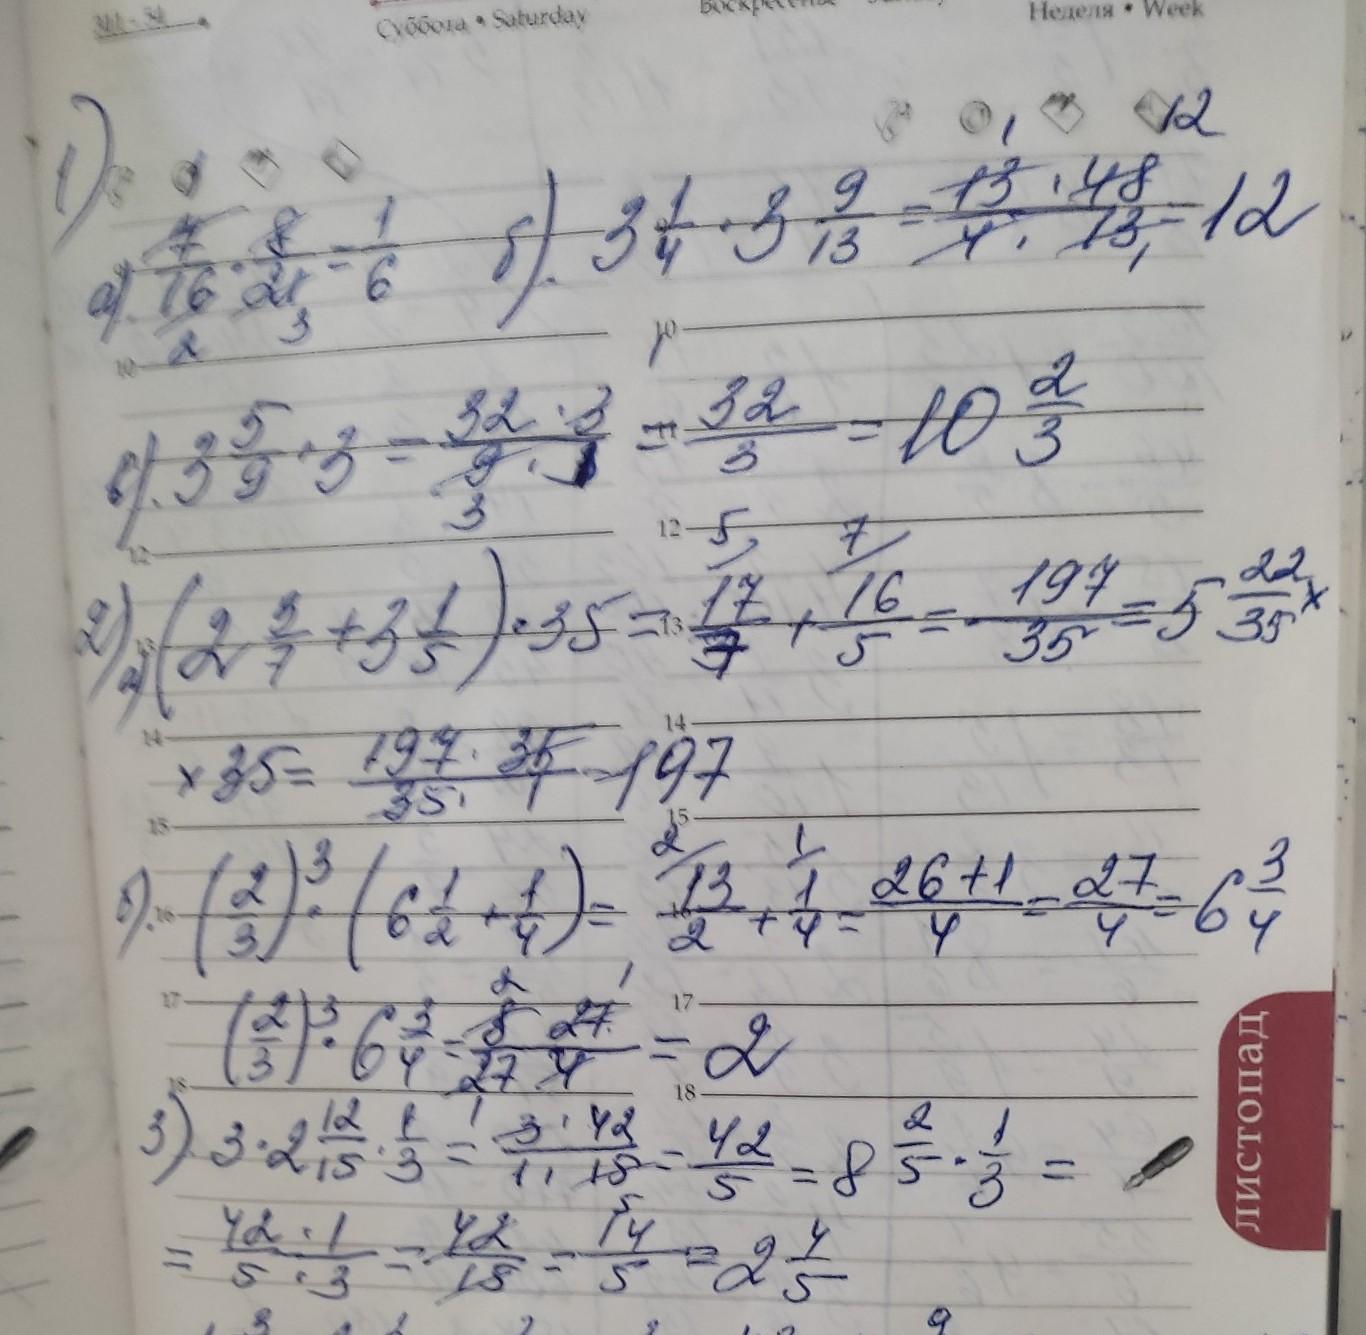 Суббота • Saturday
Неделя • Week
1)
а) 7/16 · 8/21 = 1/6
б). 3 1/4 · 3 9/13 = 13 · 48 / 4 · 13 = 12
10 10
в). 3 5/9 · 3 = 32 · 3 / 9 · 1 = 32/3 = 10 2/3
12 12
2) а) (2 3/7 + 3 1/5) · 35 = 17/7 + 16/5 = 197/35 = 5 22/35 ×
14 14
× 35 = 197 · 35 / 35 · 1 = 197
15 15
б). (2/3)³ · (6 1/2 + 1/4) = 13/2 + 1/4 = 26+1/4 = 27/4 = 6 3/4
17 17
(2/3)³ · 6 3/4 = 8 27 / 27 4 = 2
18 18
3) 3 · 2 12/15 · 1/3 = 3 · 42 / 1 · 15 = 42/5 = 8 2/5 · 1/3 =
= 42 · 1 / 5 · 3 = 42/15 = 14/5 = 2 4/5
ЛИСТОПАД